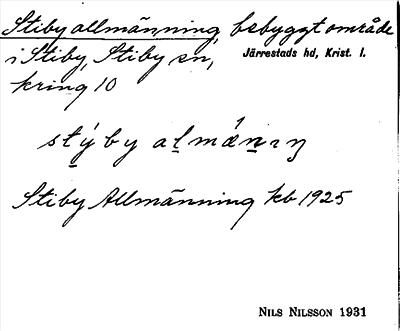 Stiby allmänning, bebyggt område
i Stiby, Stiby sn, Järrestads hd, Krist. l.
kring 10
stýby almǽnıŋ
Stiby Allmänning kb 1925
NILS NILSSON 1931